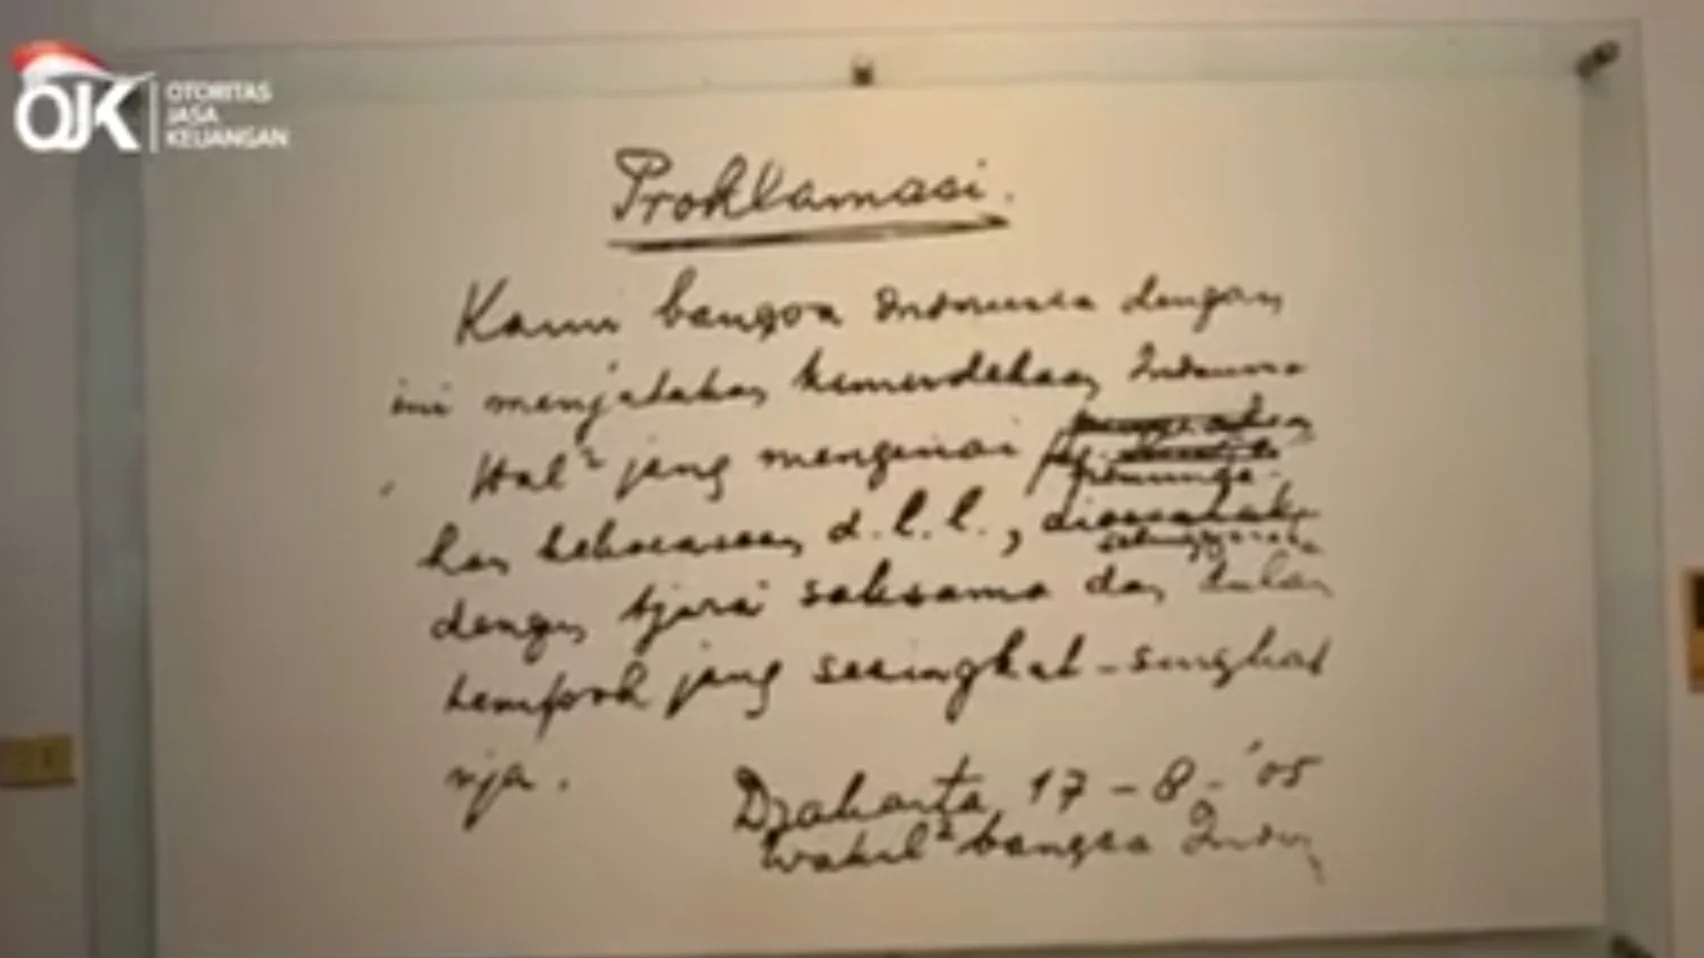 OJK
OTORITAS
JASA
KEUANGAN
Proklamasi.
Kami bangsa Indonesia dengan
ini menjatakan kemerdekaan Indonesia
. Hal² jang mengenai
kan kekoeasaan d.l.l.,
dengan tjara saksama dan dalam
tempoh jang sesingkat-singkat
nja.
Djakarta, 17-8-'05
Wakil² bangsa Indon